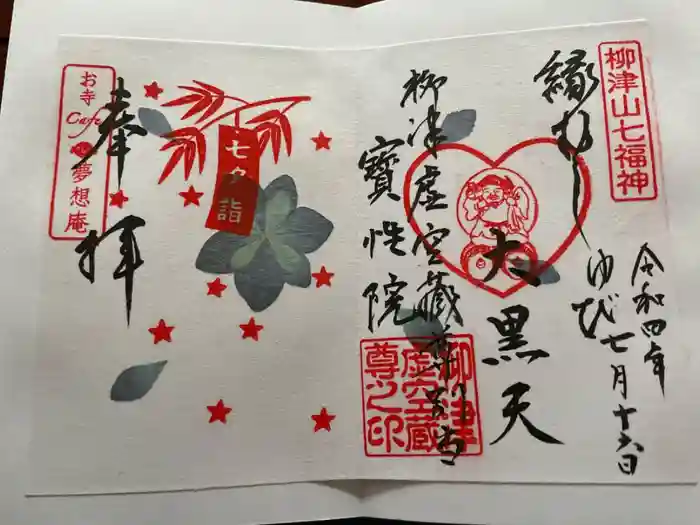 柳津山七福神
令和四年
七月十六日
縁むすび
大黒天
柳津虚空蔵尊
寳性院
柳津虚空蔵尊之印
七夕詣
奉拝
お寺
Cafe
夢想庵